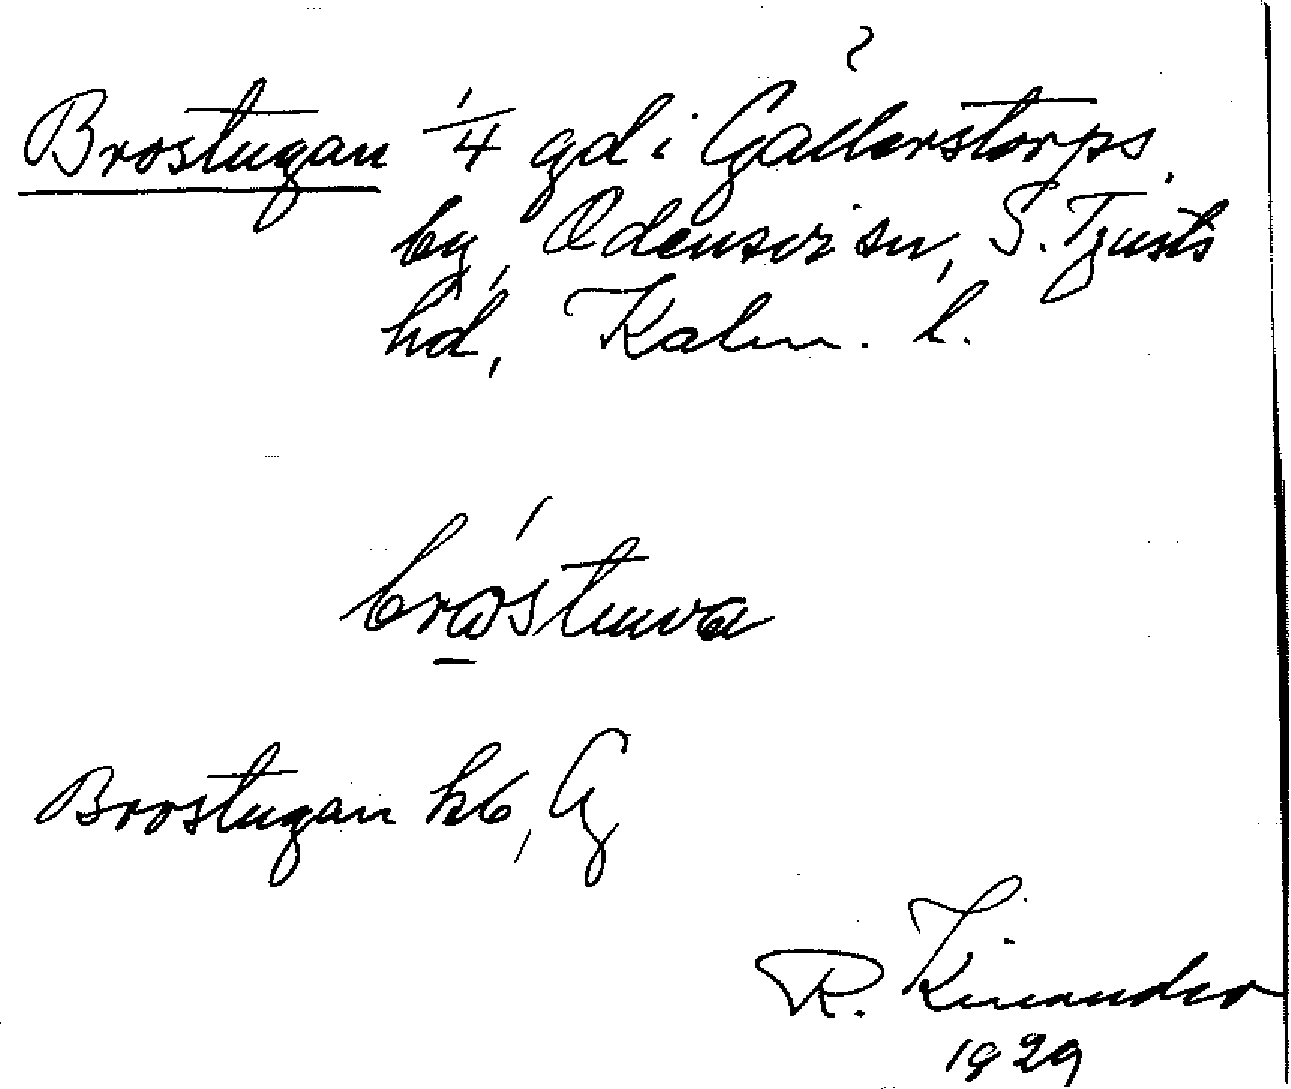 Brostugan 1/4 gd i Gallerstorps
by, Odensvi sn, S. Tjusts
hd, Kalm. l.
bråstuwa
Brostugan hb, G
R. Kinander
1929